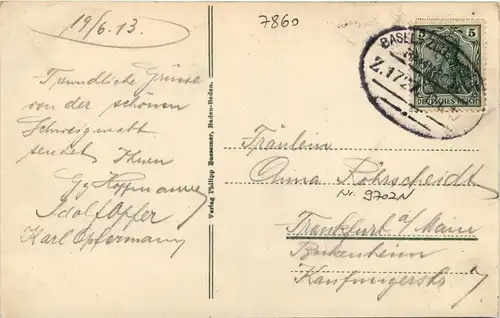 19/6.13.
7860
Freundliche Grüsse
von der schönen
Schweigmatt
sendet Ihnen
Gg Hoffmann
Adolf Opfer
Karl Opfermann
Verlag Philipp Bussemer, Baden-Baden.
5 5
DEUTSCHES REICH
BASEL
Z.172
Fräulein
Anna Rohrscheidt
Nr. 9702N
Frankfurt a/Main
Bockenheim
Kaufungerstr